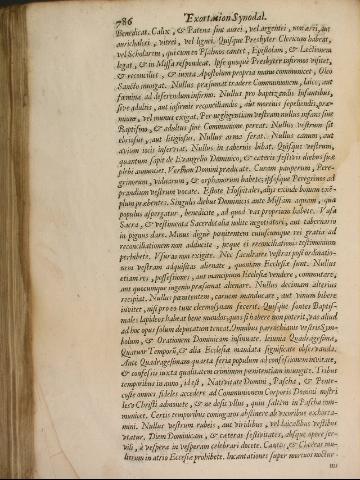 786 Exortacion Synodal.
Benedicat. Calix, & Patena sint aurei, vel argentei, non ærei, aut
aurichalcei, vitrei, vel lignei. Quisque Presbyter Clericum habeat,
vel Scholarem, qui cum eo Psalmos cantet, Epistolam, & Lectionem
legat, & in Missa respondeat. Ipse quoque Presbyter infirmos visitet,
& reconciliet, & iuxta Apostolum propria manu communicet, Oleo
Sancto inungat. Nullus præsumat tradere Communionem, laico, aut
fæmina ad deferendum infirmo. Nullus pro baptizandis infantibus,
sive adultis, aut infirmis reconciliandis, aut mortuis sepeliendis, præ-
mium, vel munus exigat. Per negligentiam vestram nullus infans sine
Baptismo, & adultus sine Communione pereat. Nullus vestrum sit
ebriosus, aut litigiosus. Nullus arma ferat. Nullus canum, aut
avium iocis inserviat. Nullus in tabernis bibat. Quisque vestrum,
quantum sapit de Evangelio Dominico, & cæteris festivis diebus suæ
plebi annunciet. Verbum Domini prædicate. Curam pauperum, Pere-
grinorum, viduarum, & orphanorum habete; ipsosque Peregrinos ad
prandium vestrum vocate. Estote Hospitales, alijs exinde bonum exẽ-
plum præbentes. Singulis diebus Dominicis ante Missam aquam, qua
populus aspergatur, benedicite, ad quod vas proprium habete. Vasa
Sacra, & vestimenta Sacerdotalia nolite negotiatori, aut tabernario
in pignus dare. Minus dignè pœnitentem cuiuscumque rei gratia ad
reconciliationem non adducite, neque ei reconciliationis testimonium
perhibete. Vsuras non exigite. Nec facultates vestras post ordinatio-
nem vestram adquisitas alienate, quoniam Ecclesiæ sunt. Nullus
etiam res, possessiones, aut mancipium Ecclesiæ vendere, commutare,
aut quocumque ingenio præsumat alienare. Nullus decimam alterius
recipiat. Nullus pœnitentem, carnem manducare, aut vinum bibere
invitet, nisi pro eo tunc elemosynam fecerit. Quisque fontes Baptis-
males lapideos habeat bene mundos; quos si habere non poterit, vas aliud
ad hoc opus solum deputatum teneat. Omnibus parrochianis vestris Sym-
bolum, & Orationem Dominicam insinuate. Ieiunia Quadragesimæ,
Quatuor Temporũ, & alia Ecclesiæ mandata significate observanda.
Ante Quadragesimam quarta feria populum ad confessionem invitate,
& confessis iuxta qualitatem criminum pœnitentiam iniungite. Tribus
temporibus in anno, id est, Nativitate Domini, Pascha, & Pente-
coste omnes fideles accedere ad Communionem Corporis Domini nostri
Iesu Christi admonete, & ne desit vllus, quin saltem in Pascha com-
municet. Certis temporibus coniugatos abstinere ab vxoribus exhorta-
mini. Nullus vestrum rubeis, aut viridibus, vel laicalibus vestibus
vtatur. Diem Dominicam, & cæteras festivitates, absque opere ser-
vili, à vespera in vesperam celebrari docete. Cantus, & Choreas mu-
lierum in atrio Ecclesiæ prohibete. Incantationes super mortuos noctur-